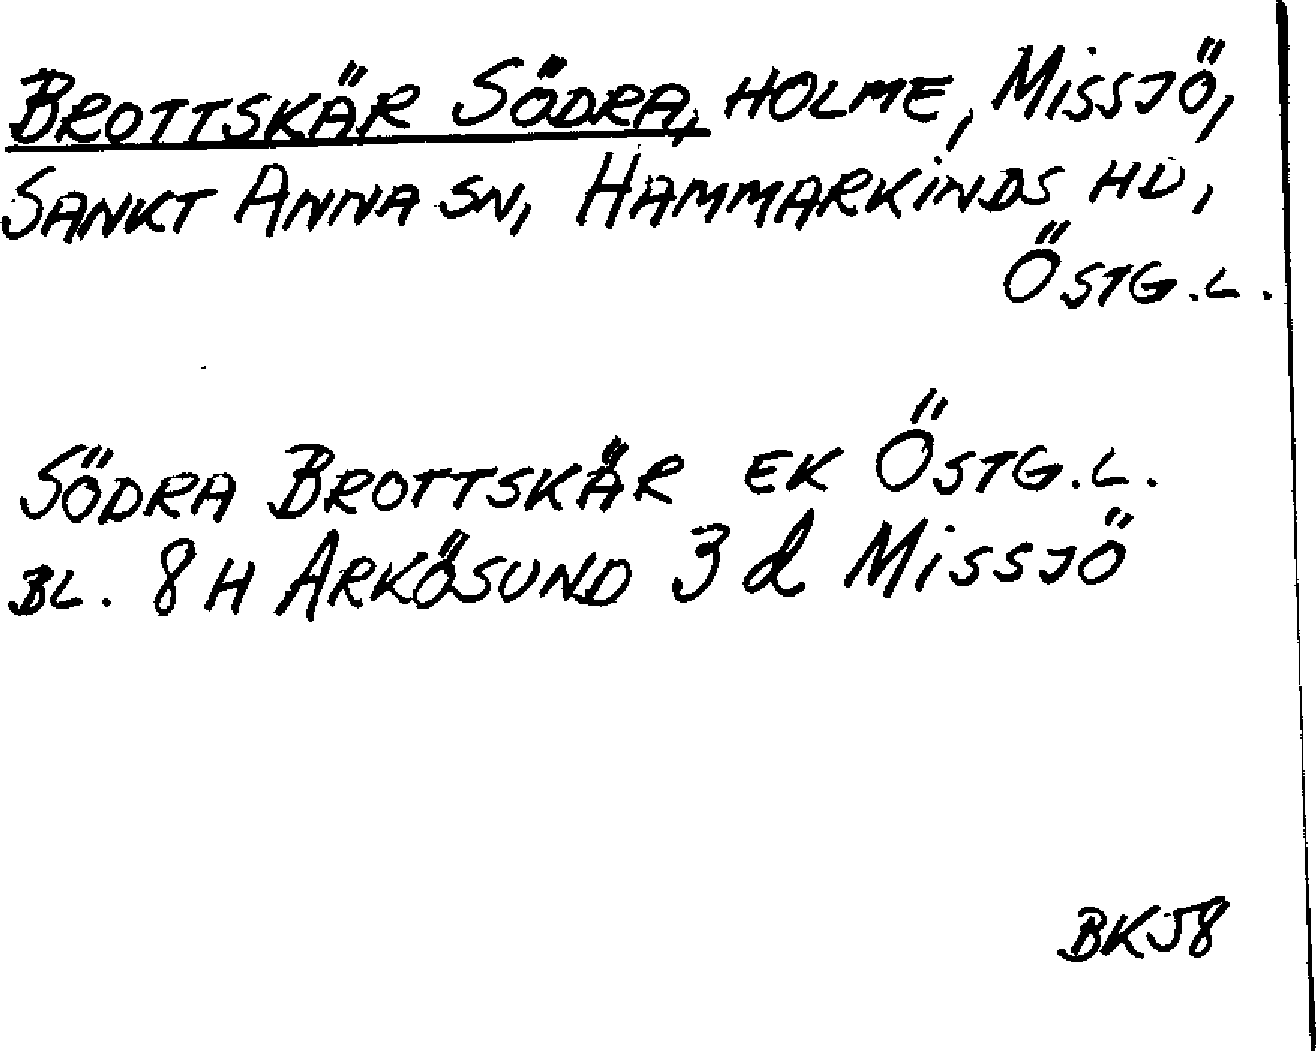 BROTTSKÄR SÖDRA, HOLME, MISSJÖ,
SANKT ANNA SN, HAMMARKINDS HD,
ÖSTG.L.
SÖDRA BROTTSKÄR EK ÖSTG.L.
BL. 8 H ARKÖSUND 3 d MISSJÖ
BK58